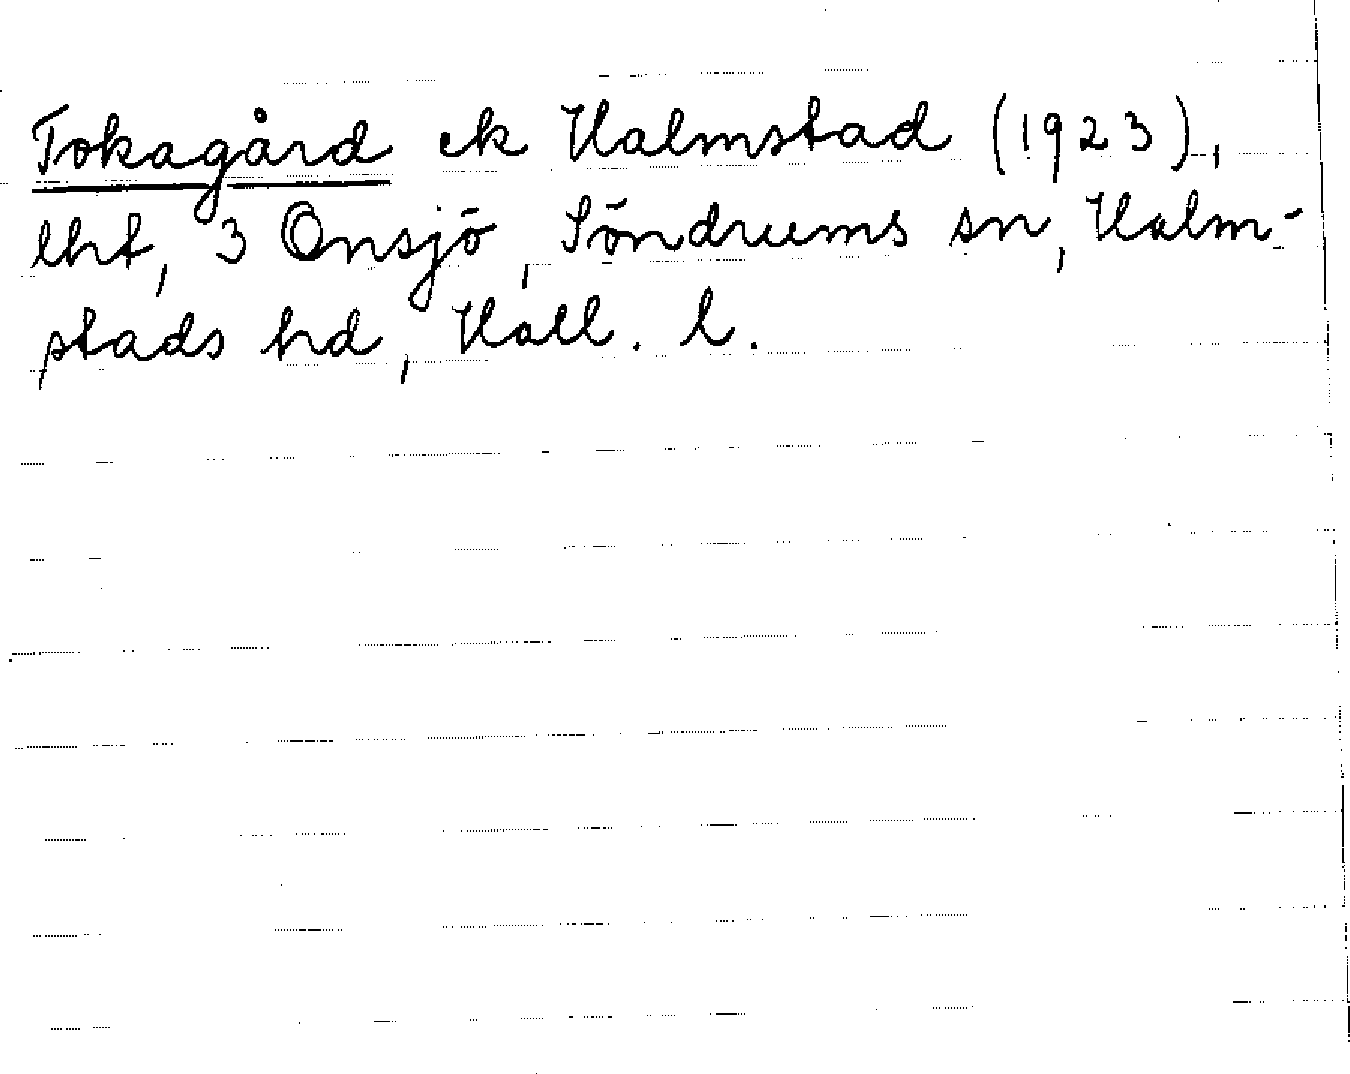 Tokagård ek Halmstad (1923),
lht, 3 Onsjö, Söndrums sn, Halm-
stads hd, Hall. l.